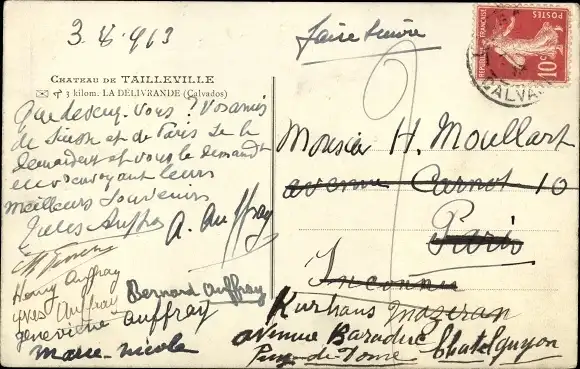 3.8.913
CHATEAU DE TAILLEVILLE
3 kilom. LA DÉLIVRANDE (Calvados)
Que devenez-vous ? Vos amis
de et de Paris se le
demandent et vous le demandent
en vous envoyant leurs
meilleurs souvenirs
Jules Auffray
A. Auffray
Henry Auffray
Yves Auffray
Bernard Auffray
geneviève auffray
Marie-nicole
faire suivre
REPUBLIQUE FRANÇAISE
POSTES
10c
CALVADOS
Monsieur H. Moullart
avenue Carnot 10
Paris
Inconnu
Kurhaus
avenue Baraduc Chatelguyon
Puy-de-Dome